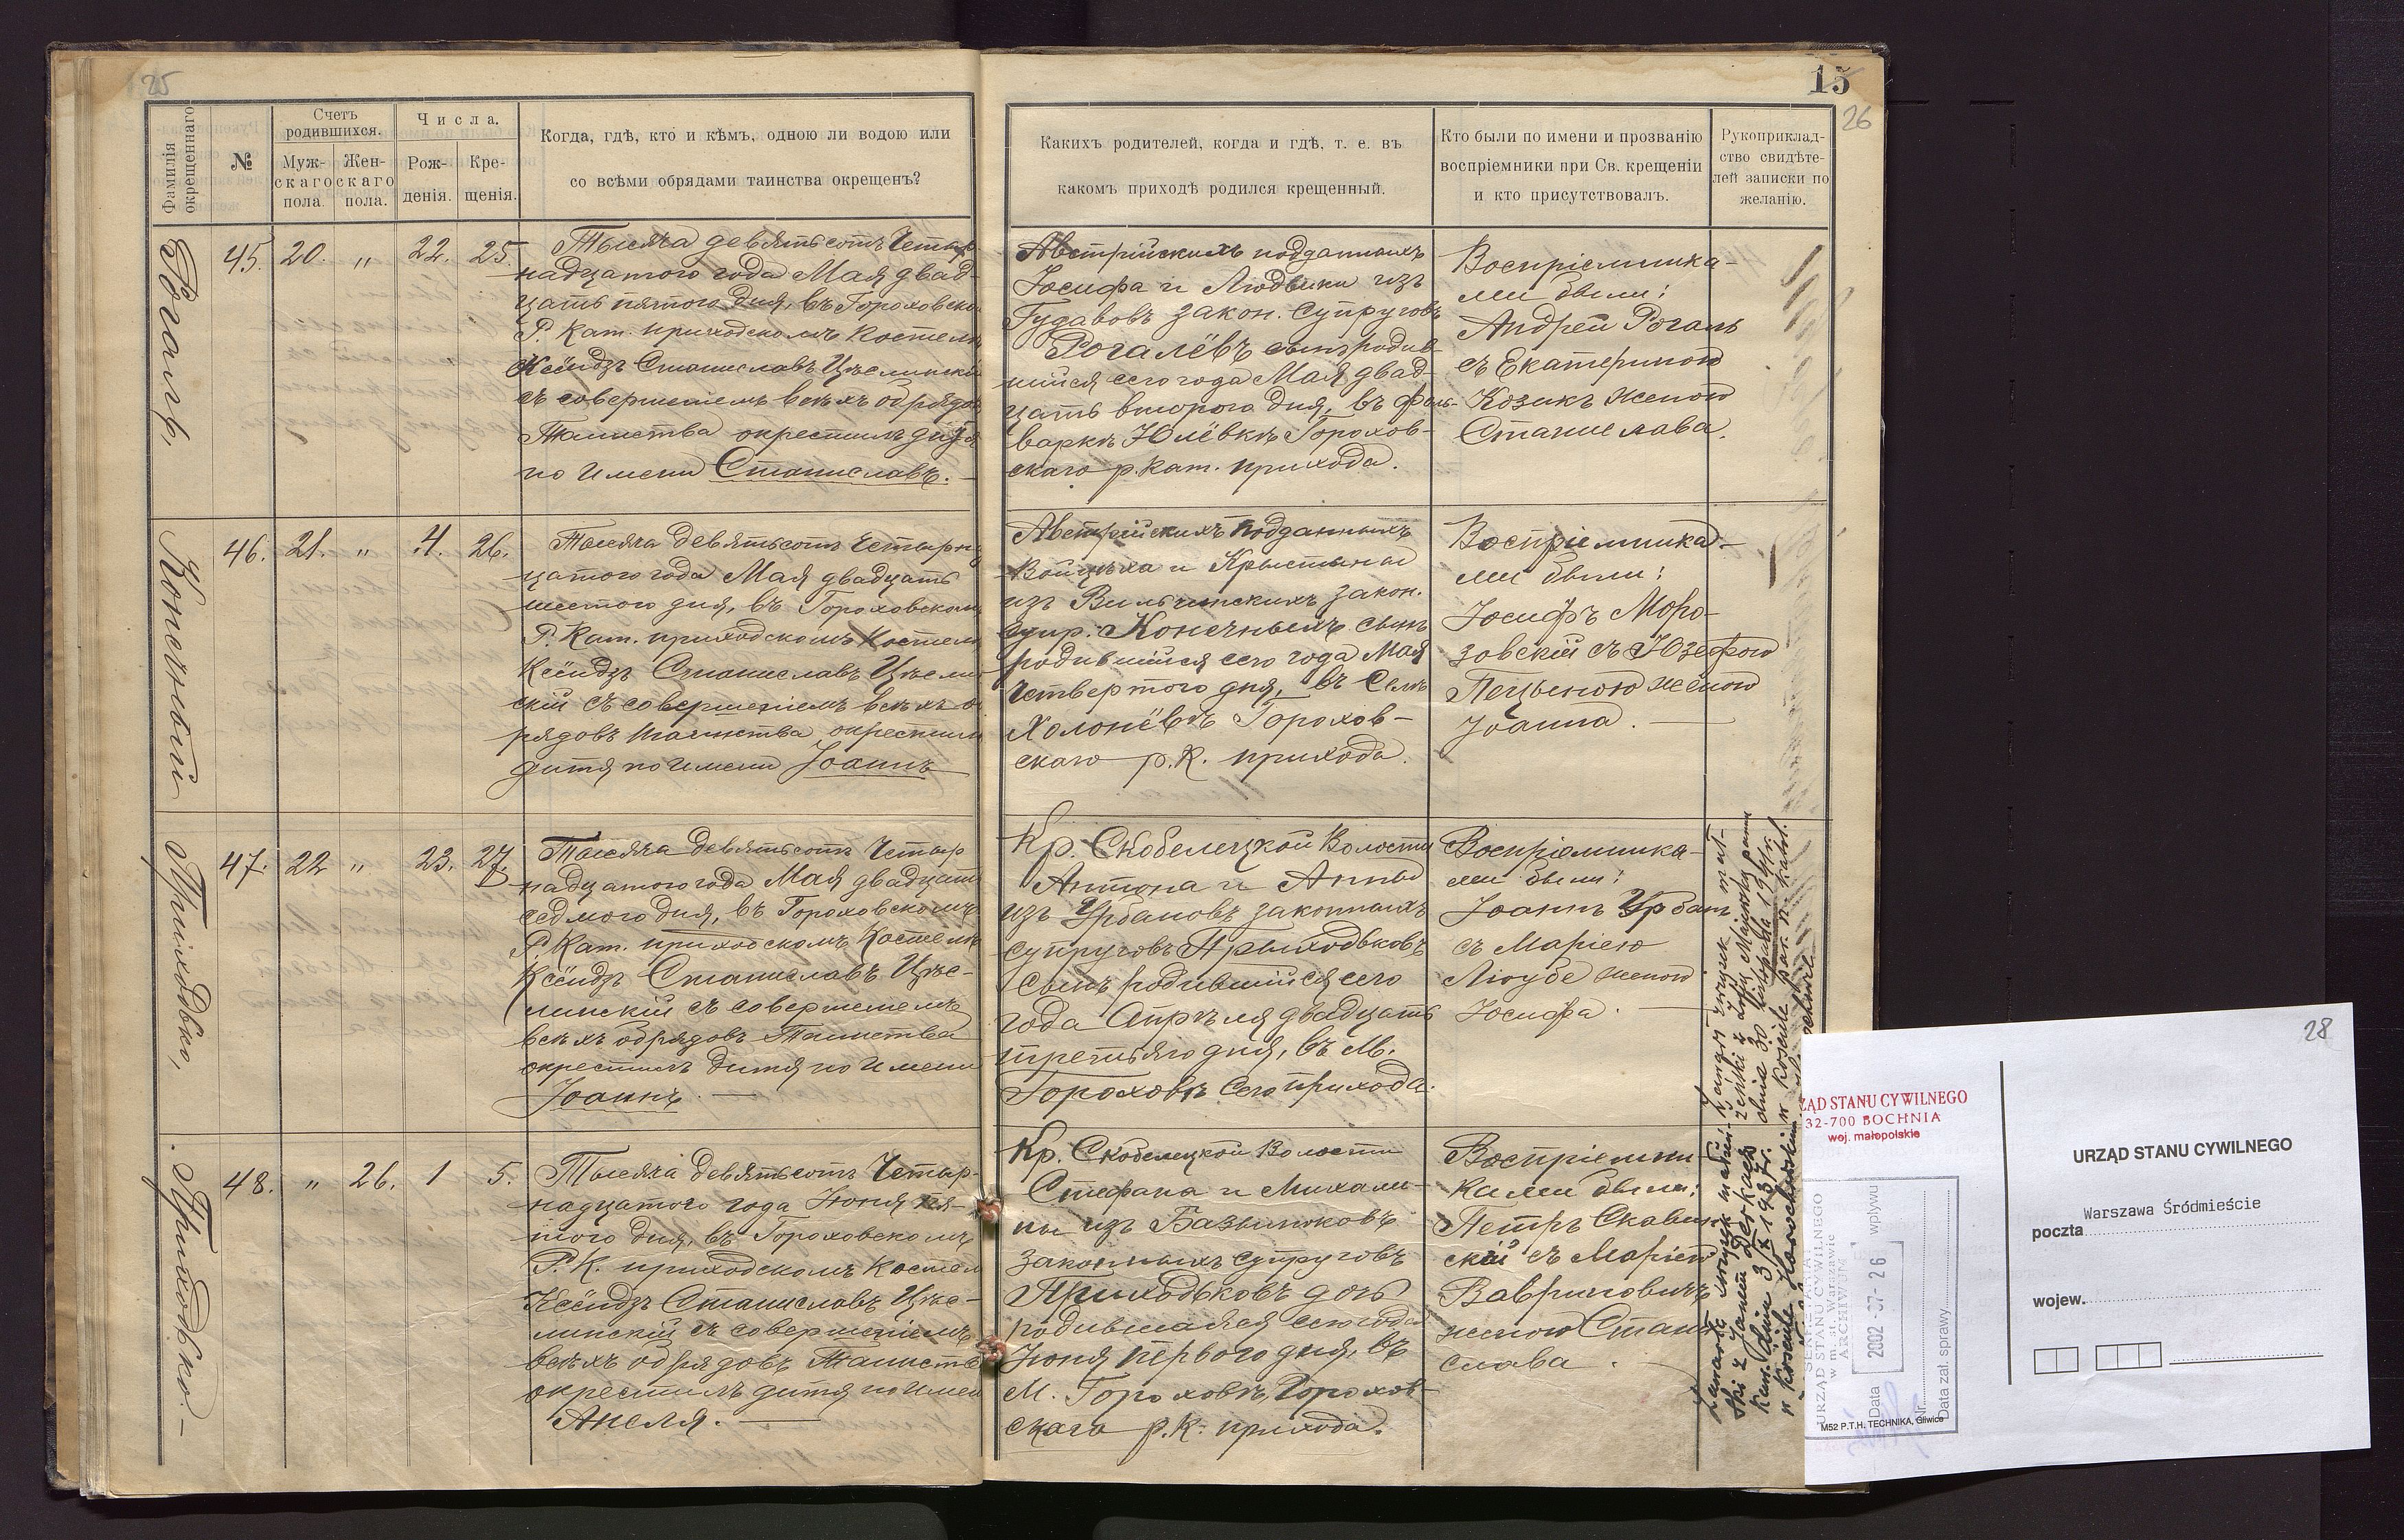 25
15
26
Фамилія окрещеннаго
№
Счетъ родившихся.
Муж-скаго пола.
Жен-скаго пола.
Числа.
Рож-денія.
Кре-щенія.
Когда, гдѣ, кто и кѣмъ, одною ли водою или
со всѣми обрядами таинства окрещенъ?
Какихъ родителей, когда и гдѣ, т. е. въ
какомъ приходѣ родился крещенный.
Кто были по имени и прозванію
воспріемники при Св. крещеніи
и кто присутствовалъ.
Рукоприклад-
ство свидѣте-
лей записки по
желанію.
Рогаль,
45. 20. " 22. 25.
Тысяча девятьсотъ Четыр-
надцатого года Мая двад-
цать пятого дня, въ Гороховско
Р. Кат. приходскомъ Костелѣ
Ксёндзъ Станиславъ Цѣслинскій
съ совершеніемъ всѣхъ обрядов
Таинства окрестилъ дитя
по имени Станиславъ.
Австрійскихъ подданныхъ
Іосифа и Людвики изъ
Гудавовъ закон. супруговъ
Рогалёвъ сынъ родив-
шійся сего года Мая двад-
цать второго дня, въ фоль-
варкѣ Юлёвкѣ Горохов-
скаго р. кат. прихода.
Воспріемника-
ми были:
Андрей Рогаль
съ Екатериною
Козакъ женою
Станислава.
Конечный
46. 21. " 4. 26.
Тысяча девятьсотъ Четырна
цатого года Мая двадцать
шестого дня, въ Гороховском
Р. Кат. приходскомъ Костелѣ
Ксёндзъ Станиславъ Цѣслин
скій съ совершеніемъ всѣхъ о
рядовъ таинства окрестилъ
дитя по имени Іоаннъ
Австрійскихъ подданныхъ
Войцѣха и Крыстыны
изъ Вильчинскихъ закон.
супр. Конечныхъ сынъ
родившійся сего года Мая
четвертого дня, въ селѣ
Холонёвѣ Горохов-
скаго р. К. прихода.
Воспріемника-
ми были:
Іосифъ Моро-
зовскій съ Юзефою
Пецьною женою
Іоанна.
Приходько,
47. 22 " 23. 27.
Тысяча девятьсотъ Четыр
надцатого года Мая двадцать
седмого дня, въ Гороховскомъ
Р. Кат. приходскомъ Костелѣ
Ксёндзъ Станиславъ Цѣс-
линскій съ совершеніемъ
всѣхъ обрядовъ Таинства
окрестилъ дитя по имени
Іоаннъ.
Кр. Скобелецкой Волости
Антона и Анны
изъ Урбановъ законныхъ
супруговъ Прыходьковъ
сынъ родившійся сего
года Апрѣля двадцать
третьяго дня, въ М.
Гороховѣ сего прихода.
Воспріемника-
ми были:
Іоаннъ Урбанъ
съ Маріею
Люубе женою
Іосифа.
Приходько.
48. " 26. 1 5.
Тысяча девятьсотъ Четыр-
надцатого года Іюня пя-
того дня, въ Гороховскомъ
Р. К. приходскомъ костел
Ксёндзъ Станиславъ Цѣс-
линскій съ совершеніемъ
всѣхъ обрядовъ Таинств
окрестилъ дитя по имен
Анеля.
Кр. Скобелецкой Волости
Стефана и Михали-
ны изъ Базылюковъ
законныхъ супруговъ
Приходьковъ дочь
родившаяся сего года
Іюня первого дня, въ
М. Гороховѣ, Горохов-
скаго р. К. прихода.
Воспріемни-
ками были:
Петръ Скавин-
скій съ Маріею
Вавриновичъ
женою Стани-
слава.
Zawarła związek małżeń-
ski z Janem Derkacz
dnia 3 X 1937 r.
w kościele Horochowskim
Zawarł związek mał-
żeński z Zofią panną
dnia 30 listopada 1941 r.
w kościele par. rz. katol.
28
ZĄD STANU CYWILNEGO
32-700 BOCHNIA
woj. małopolskie
URZĄD STANU CYWILNEGO
w m. st. Warszawie
ARCHIWUM
Data 2002 -07- 26 wpływu
Nr
Data zał. sprawy
M52 P.T.H. TECHNIKA, Gliwice
URZĄD STANU CYWILNEGO
Warszawa Śródmieście
poczta
wojew.